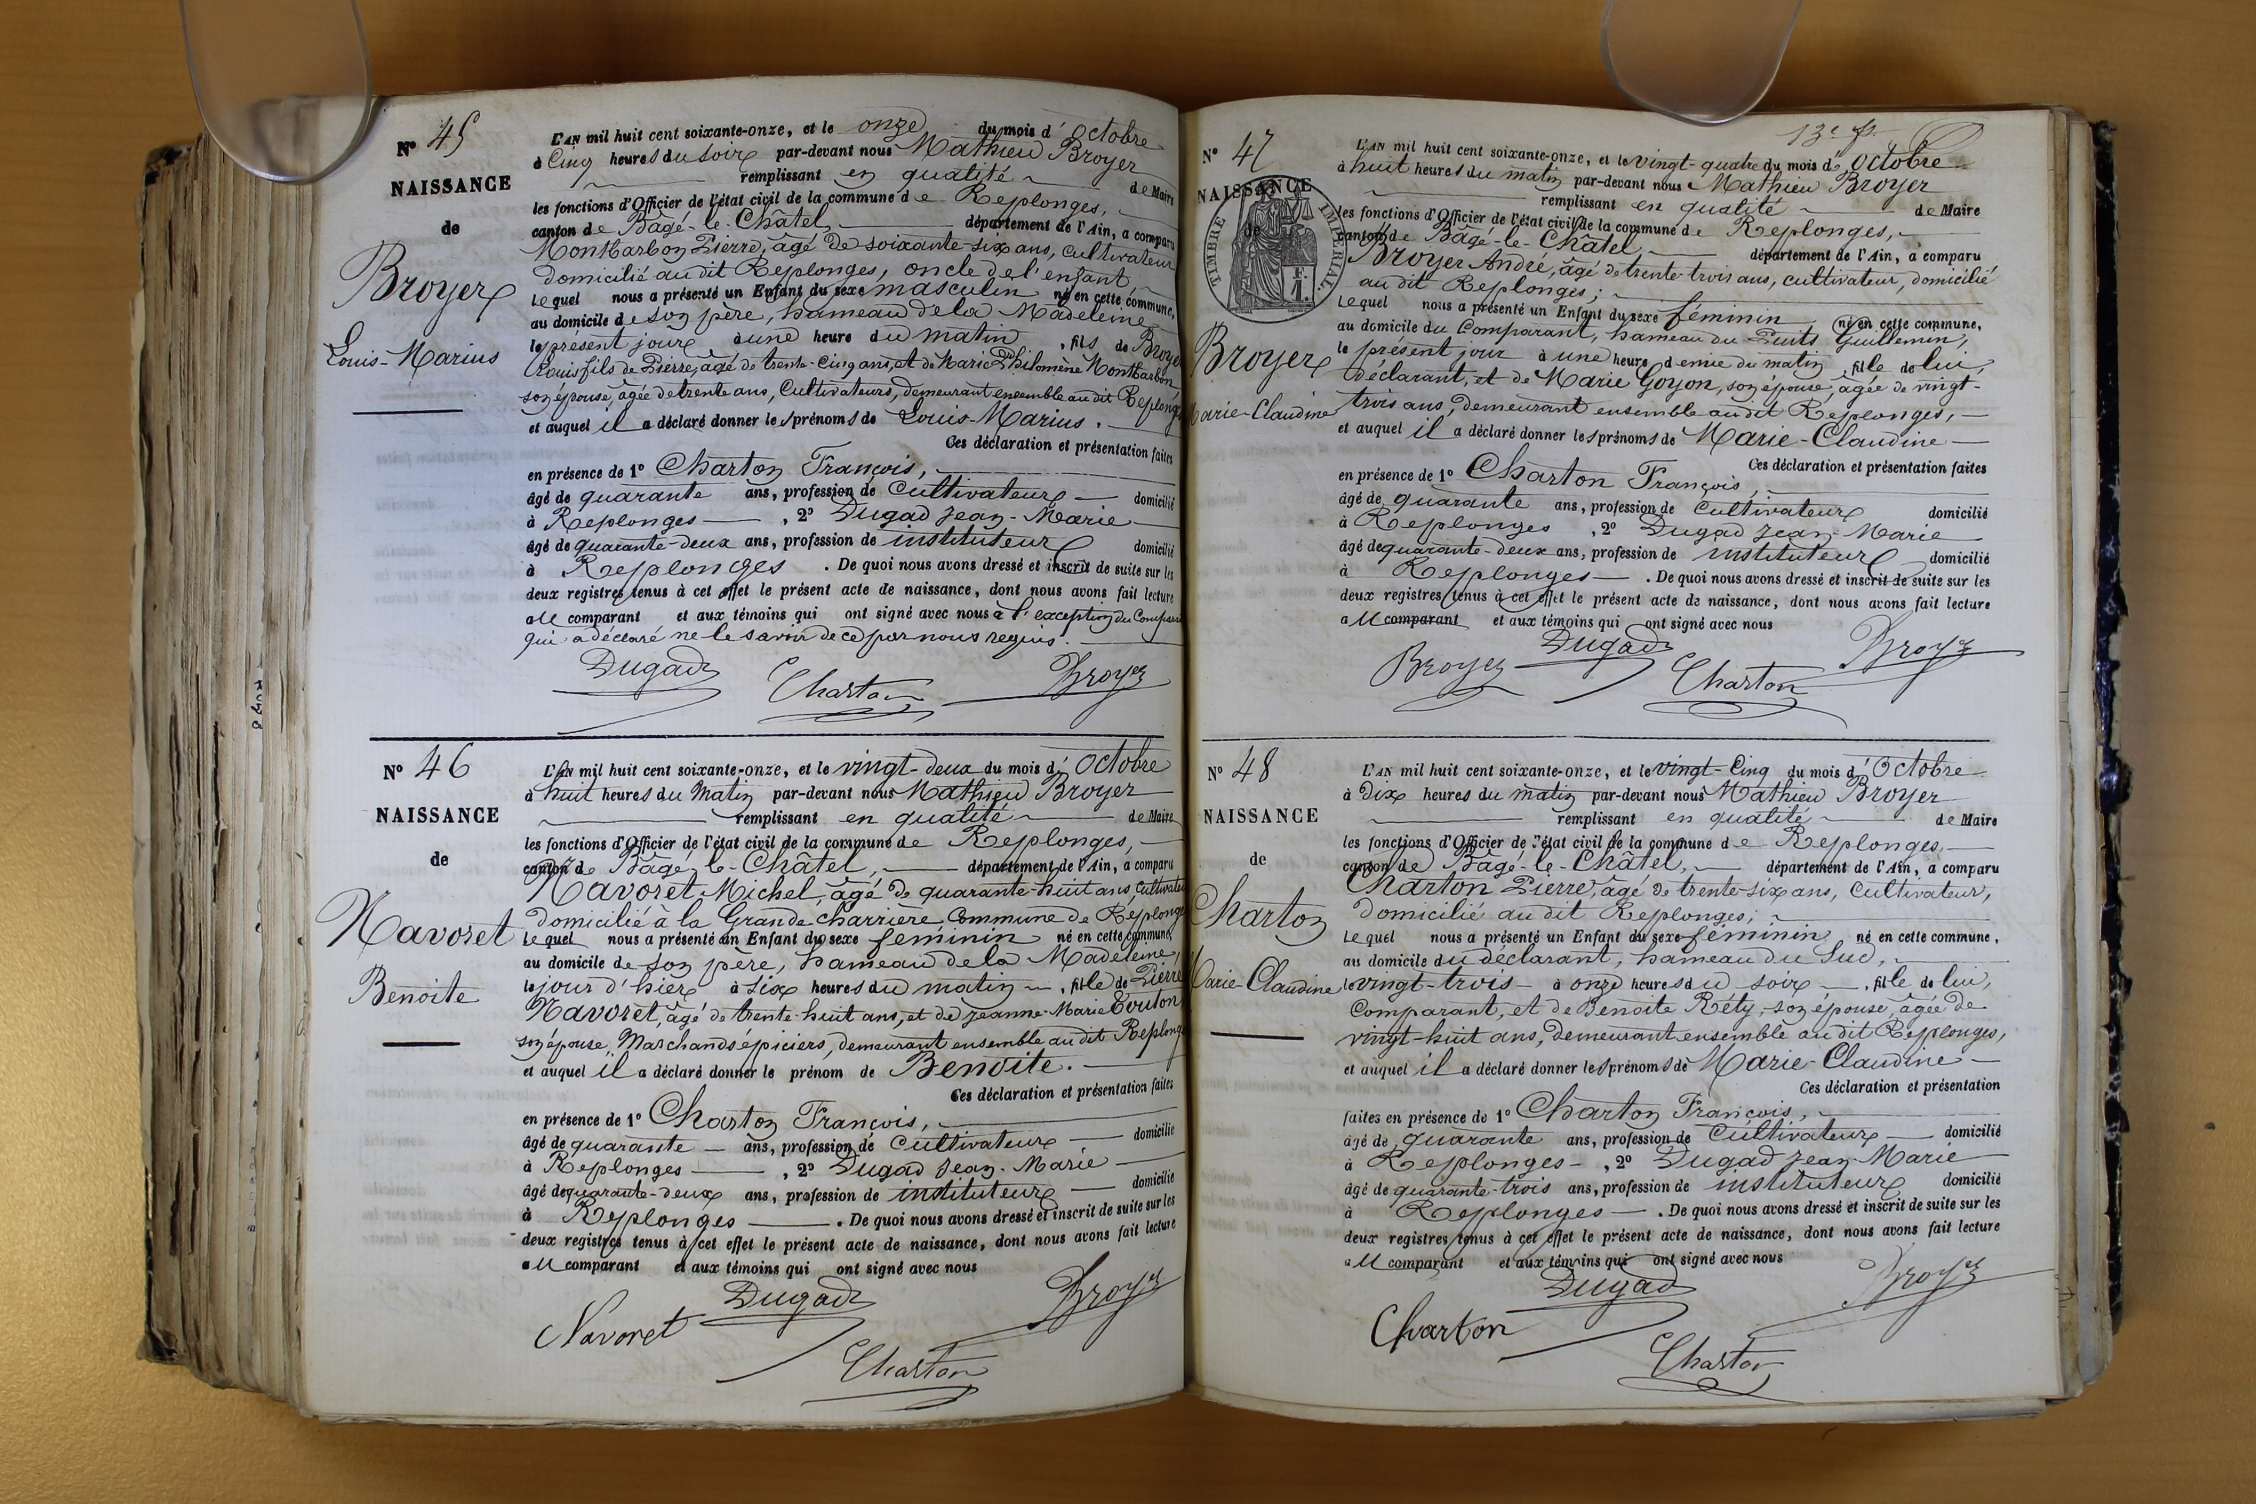 N° 45
NAISSANCE
de
Broyer
Louis-Marius
L'AN mil huit cent soixante-onze, et le onze du mois d'Octobre
à Cinq heures du soir par-devant nous Mathieu Broyer
remplissant en qualité de Maire
les fonctions d'Officier de l'état civil de la commune de Replonges,
canton de Bâgé-le-Châtel, département de l'Ain, a comparu
Montbarbon Pierre, âgé de soixante-six ans, Cultivateur
domicilié au dit Replonges, oncle de l'enfant
Lequel nous a présenté un Enfant du sexe masculin né en cette commune,
au domicile de son père, hameau de la Madeleine
le présent jour à une heure du matin, fils de Broyer
Louis fils de Pierre, âgé de trente-cinq ans, et de Marie Philomène Montbarbon
son épouse, âgée de trente ans, Cultivateurs, demeurant ensemble au dit Replonges
et auquel il a déclaré donner les prénoms de Louis-Marius.
Ces déclaration et présentation faites
en présence de 1° Charton François,
âgé de quarante ans, profession de Cultivateur domicilié
à Replonges, 2° Dugad Jean-Marie
âgé de quarante-deux ans, profession de instituteur domicilié
à Replonges. De quoi nous avons dressé et inscrit de suite sur les
deux registres tenus à cet effet le présent acte de naissance, dont nous avons fait lecture
au comparant et aux témoins qui ont signé avec nous à l'exception du Comparant
qui a déclaré ne le savoir de ce par nous requis.
Dugad Charton Broyer
N° 46
NAISSANCE
de
Navoret
Benoite
L'AN mil huit cent soixante-onze, et le vingt-deux du mois d'Octobre
à huit heures du Matin par-devant nous Mathieu Broyer
remplissant en qualité de Maire
les fonctions d'Officier de l'état civil de la commune de Replonges,
canton de Bâgé-le-Châtel, département de l'Ain, a comparu
Navoret Michel, âgé de quarante-huit ans Cultivateur
domicilié à la Grande Charrière, Commune de Replonges
Lequel nous a présenté un Enfant du sexe féminin né en cette commune,
au domicile de son père, hameau de la Madeleine,
le jour d'hier à six heures du matin, fille de Pierre
Navoret, âgé de trente-huit ans, et de Jeanne-Marie Couton
son épouse, Marchands épiciers, demeurant ensemble au dit Replonges
et auquel il a déclaré donner le prénom de Benoite.
Ces déclaration et présentation faites
en présence de 1° Charton François,
âgé de quarante ans, profession de Cultivateur domicilié
à Replonges, 2° Dugad Jean-Marie
âgé de quarante-deux ans, profession de instituteur domicilié
à Replonges. De quoi nous avons dressé et inscrit de suite sur les
deux registres tenus à cet effet le présent acte de naissance, dont nous avons fait lecture
au comparant et aux témoins qui ont signé avec nous
Navoret Dugad Charton Broyer
13e f.
N° 47
NAISSANCE
de
TIMBRE IMPERIAL.
1 F.
Broyer
Marie-Claudine
L'AN mil huit cent soixante-onze, et le vingt-quatre du mois d'Octobre
à huit heures du matin par-devant nous Mathieu Broyer
remplissant en qualité de Maire
les fonctions d'Officier de l'état civil de la commune de Replonges,
canton de Bâgé-le-Châtel, département de l'Ain, a comparu
Broyer André, âgé de trente-trois ans, cultivateur, domicilié
au dit Replonges;
Lequel nous a présenté un Enfant du sexe féminin né en cette commune,
au domicile du Comparant, hameau du Puits Guillemin,
le présent jour à une heure demie du matin, fille de lui,
déclarant, et de Marie Goyon, son épouse, âgée de vingt-
trois ans, demeurant ensemble au dit Replonges,
et auquel il a déclaré donner les prénoms de Marie-Claudine
Ces déclaration et présentation faites
en présence de 1° Charton François,
âgé de quarante ans, profession de Cultivateur domicilié
à Replonges, 2° Dugad Jean-Marie
âgé de quarante-deux ans, profession de instituteur domicilié
à Replonges. De quoi nous avons dressé et inscrit de suite sur les
deux registres tenus à cet effet le présent acte de naissance, dont nous avons fait lecture
au comparant et aux témoins qui ont signé avec nous
Broyer Dugad Charton Broyer
N° 48
NAISSANCE
de
Charton
Marie-Claudine
L'AN mil huit cent soixante-onze, et le vingt-Cinq du mois d'Octobre
à Dix heures du matin par-devant nous Mathieu Broyer
remplissant en qualité de Maire
les fonctions d'Officier de l'état civil de la commune de Replonges
canton de Bâgé-le-Châtel, département de l'Ain, a comparu
Charton Pierre, âgé de trente-six ans, Cultivateur,
domicilié au dit Replonges;
Lequel nous a présenté un Enfant du sexe féminin né en cette commune,
au domicile du déclarant, hameau du Sud,
le vingt-trois à onze heures du soir, fille de lui,
Comparant, et de Benoite Réty, son épouse, âgée de
vingt-huit ans, demeurant ensemble au dit Replonges,
et auquel il a déclaré donner les prénoms de Marie-Claudine
Ces déclaration et présentation
faites en présence de 1° Charton François,
âgé de quarante ans, profession de Cultivateur domicilié
à Replonges, 2° Dugad Jean-Marie
âgé de quarante-trois ans, profession de instituteur domicilié
à Replonges. De quoi nous avons dressé et inscrit de suite sur les
deux registres tenus à cet effet le présent acte de naissance, dont nous avons fait lecture
au comparant et aux témoins qui ont signé avec nous
Charton Dugad Charton Broyer